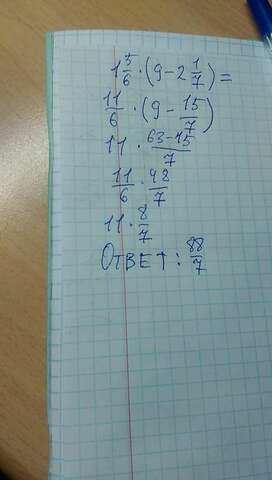 1 5/6 · (9 − 2 1/7) =
11/6 · (9 − 15/7)
11 · (63−15)/7
11/6 · 48/7
11 · 8/7
Ответ: 88/7